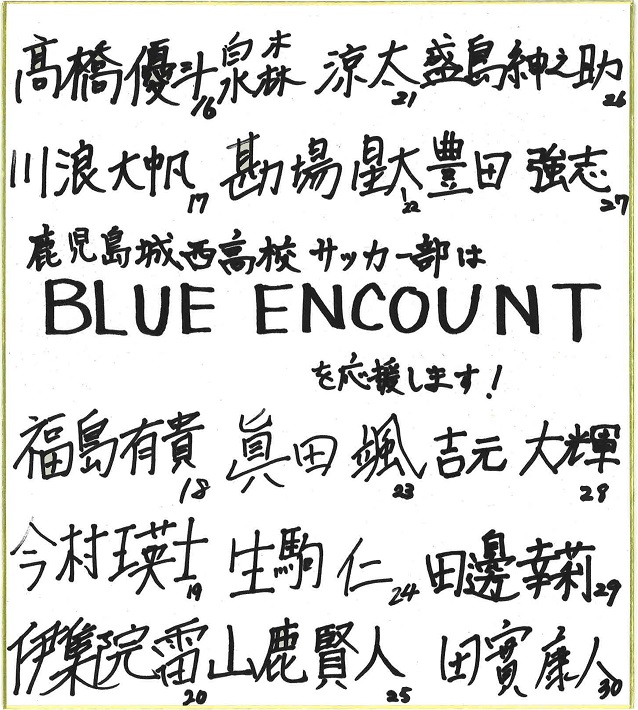 髙橋優斗16 泉森涼太21 盛島紳之助26
川浪大帆17 勘場星大22 豊田強志27
鹿児島城西高校サッカー部は
BLUE ENCOUNT
を応援します!
福島有貴18 眞田颯23 吉元大輝28
今村瑛士19 生駒仁24 田邊幸莉29
伊集院雷20 山鹿賢人25 田實康人30